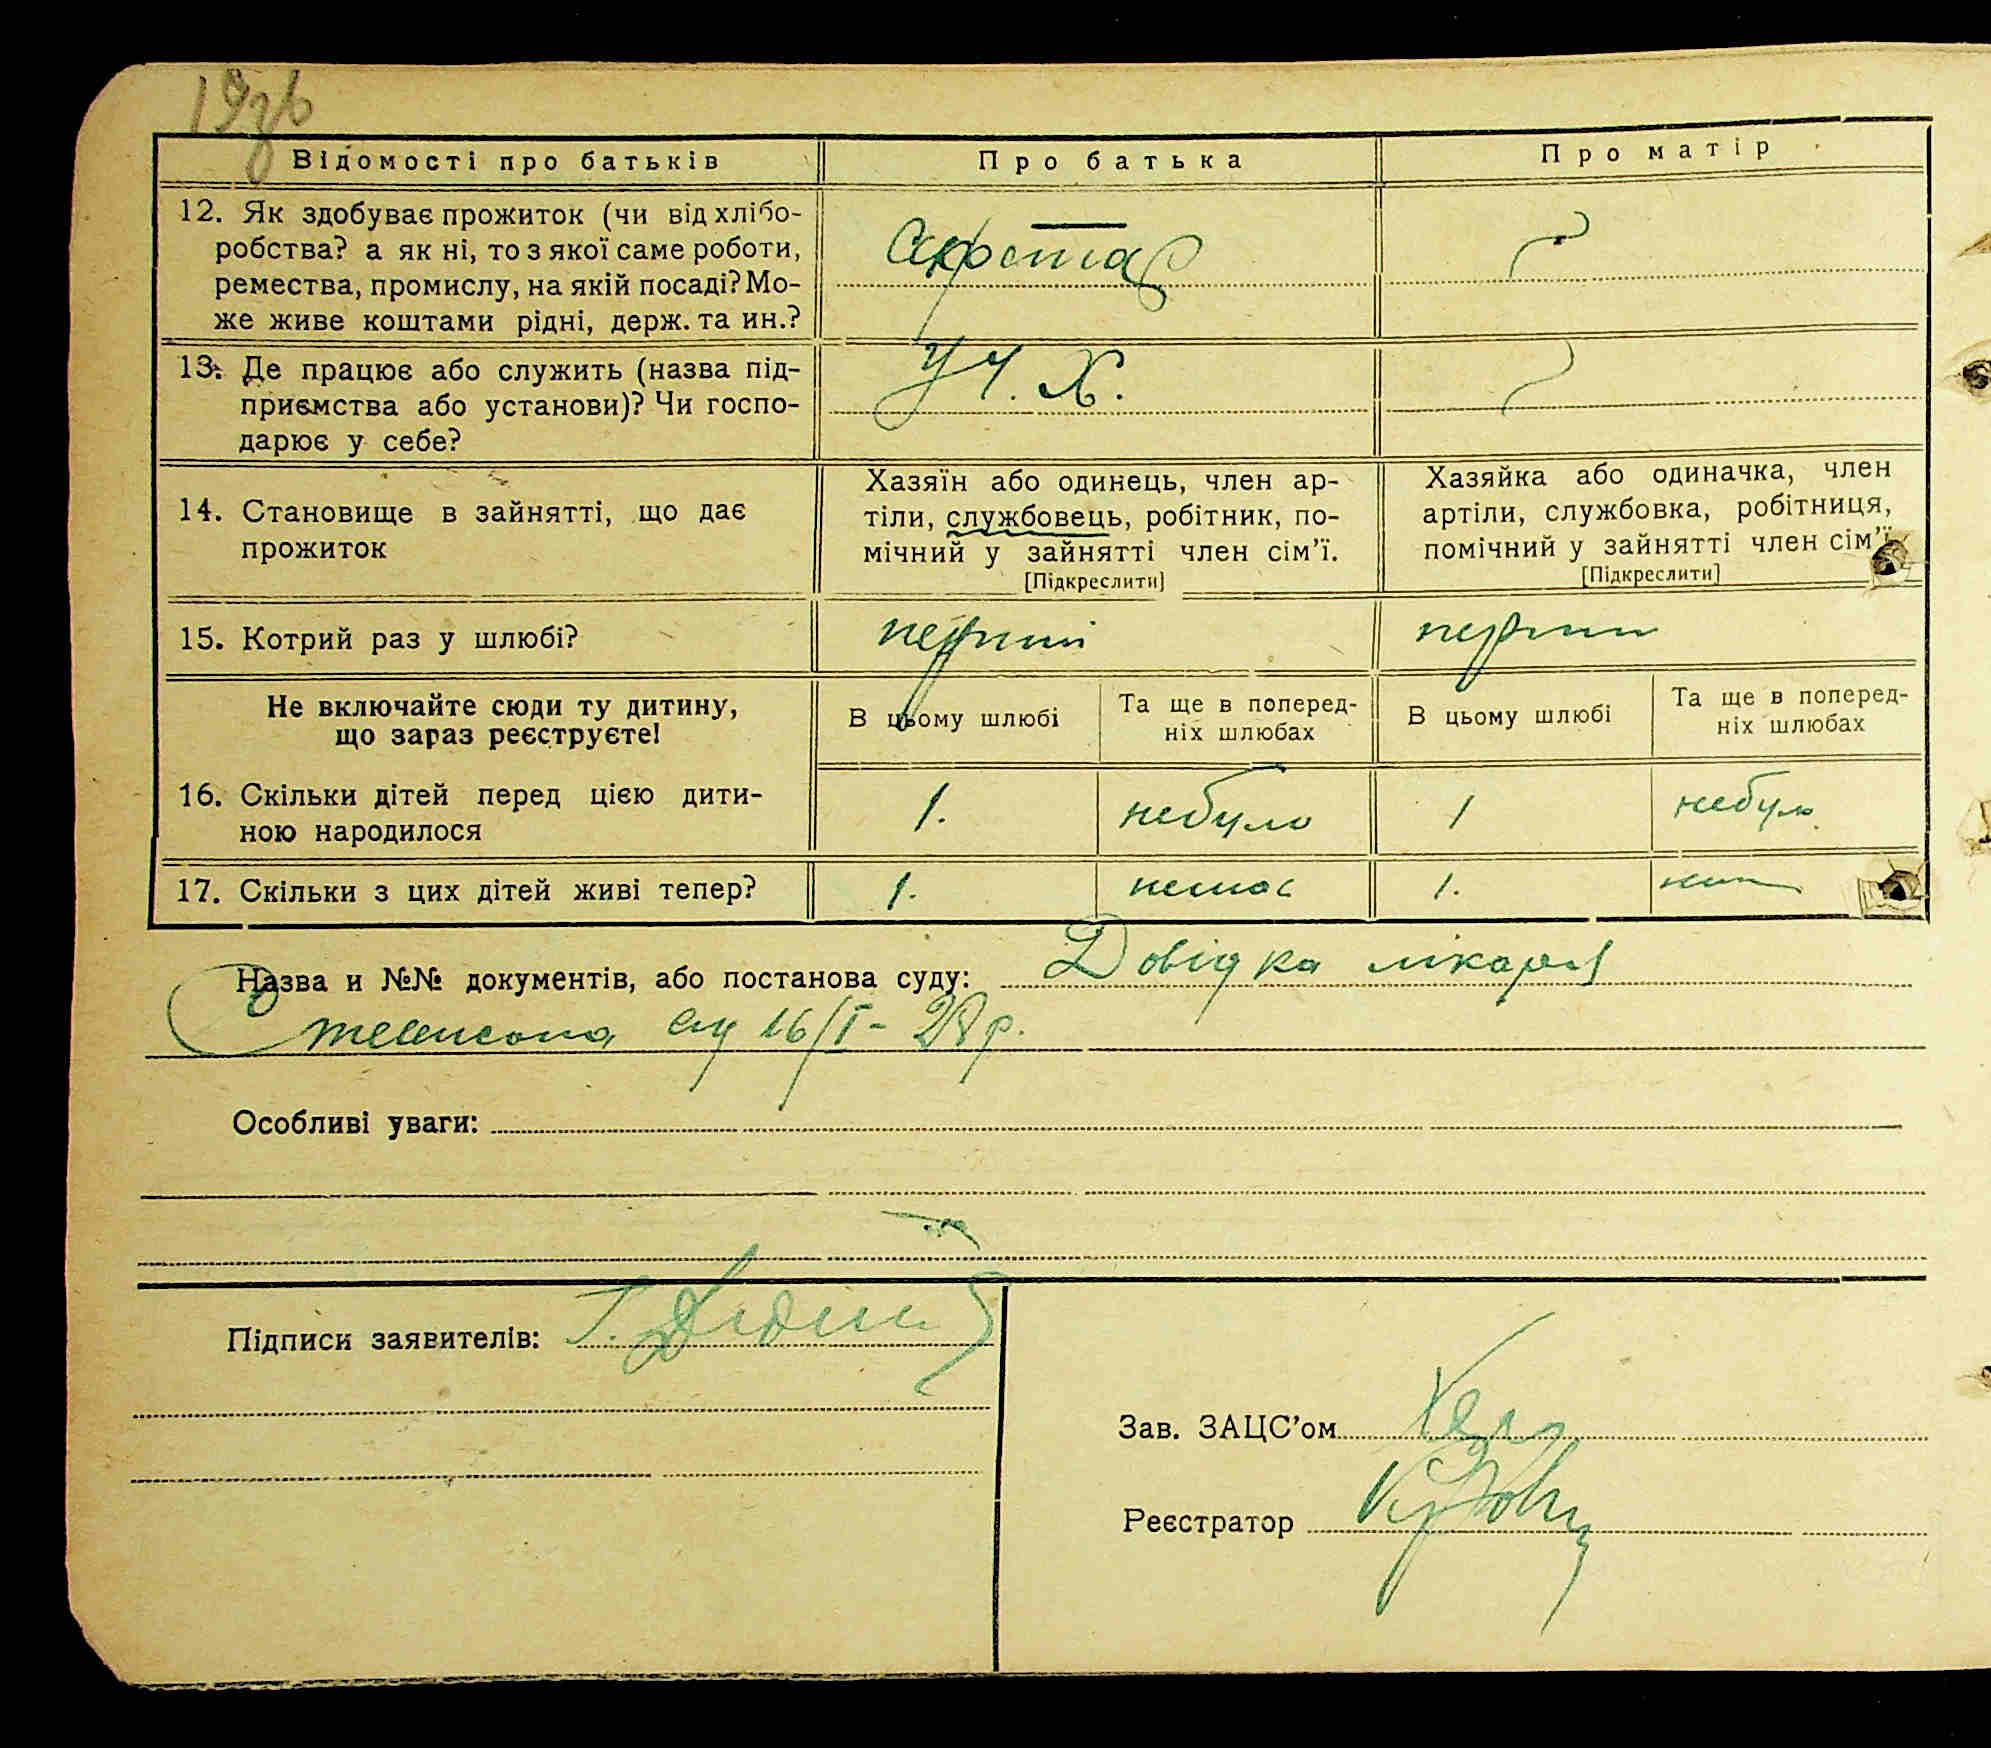 Відомості про батьків
Про батька
Про матір
12. Як здобуває прожиток (чи від хлібо-
робства? а як ні, то з якої саме роботи,
ремества, промислу, на якій посаді? Мо-
же живе коштами рідні, держ. та ин.?
13. Де працює або служить (назва під-
приємства або установи)? Чи госпо-
дарює у себе?
14. Становище в зайнятті, що дає
прожиток
Хазяїн або одинець, член ар-
тіли, службовець, робітник, по-
мічний у зайнятті член сім’ї.
[Підкреслити]
Хазяйка або одиначка, член
артіли, службовка, робітниця,
помічний у зайнятті член сім’ї.
[Підкреслити]
15. Котрий раз у шлюбі?
перший
Не включайте сюди ту дитину,
що зараз реєструєте!
В цьому шлюбі
Та ще в поперед-
ніх шлюбах
В цьому шлюбі
Та ще в поперед-
ніх шлюбах
16. Скільки дітей перед цією дити-
ною народилося
1.
небуло
1
небуло
17. Скільки з цих дітей живі тепер?
1.
немає
1.
Назва и №№ документів, або постанова суду: Довідка лікаря
16/I - 28 р.
Особливі уваги:
Підписи заявителів:
Зав. ЗАЦС’ом
Реєстратор